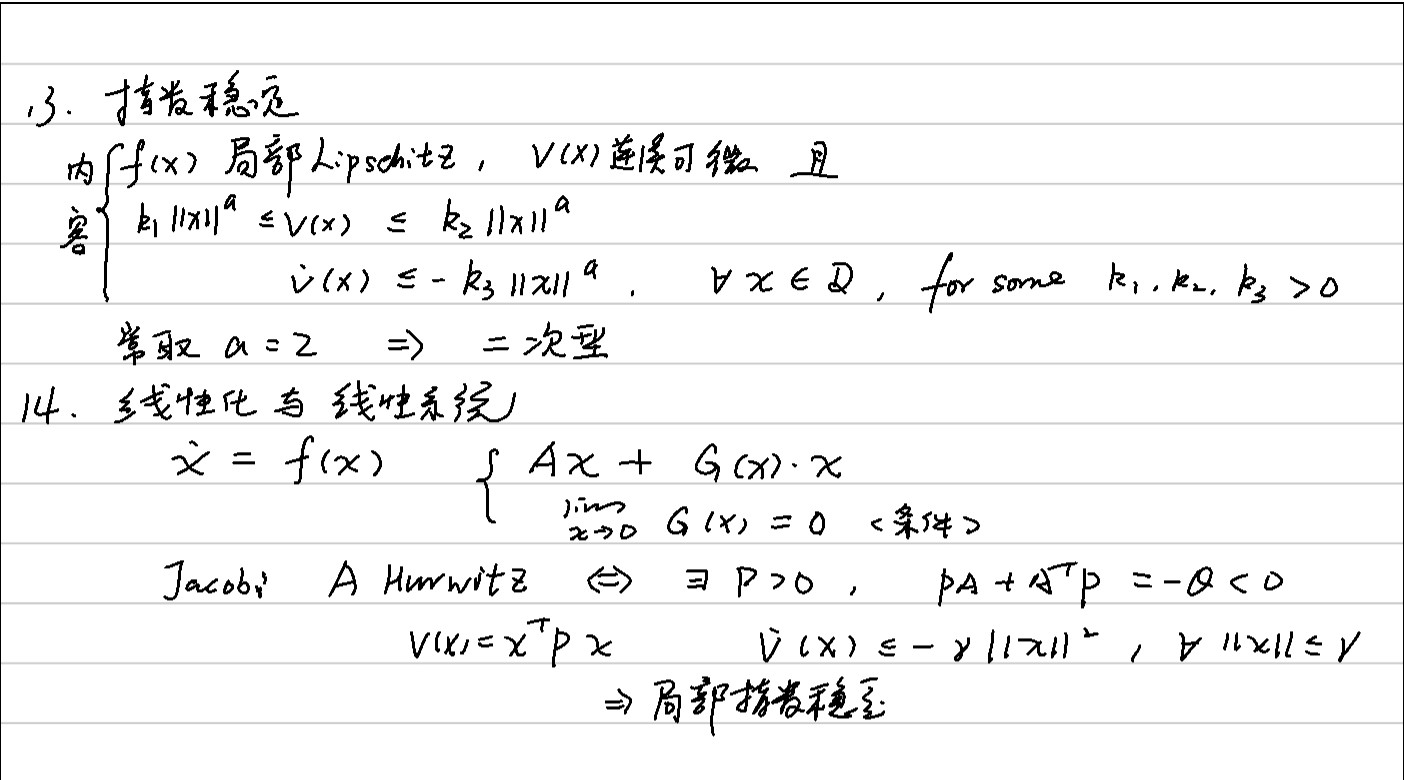 13. 指数稳定
内容 { f(x) 局部Lipschitz, V(x)连续可微 且
k₁||x||ᵃ ≤ V(x) ≤ k₂||x||ᵃ
V̇(x) ≤ -k₃||x||ᵃ. ∀x∈D, for some k₁, k₂, k₃ > 0
常取 a = 2 ⇒ 二次型
14. 线性化与线性系统
ẋ = f(x) { Ax + G(x)·x
lim x→0 G(x) = 0 <条件>
Jacobi A Hurwitz ⇔ ∃ P>0, PA + AᵀP = -Q < 0
V(x) = xᵀPx V̇(x) ≤ -γ||x||², ∀ ||x|| ≤ r
⇒ 局部指数稳定